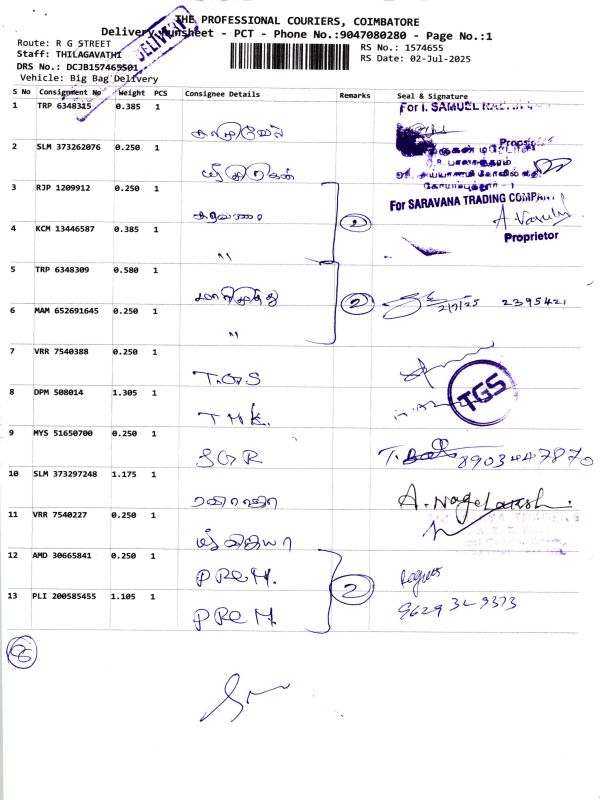 THE PROFESSIONAL COURIERS, COIMBATORE
Delivery Runsheet - PCT - Phone No.:9047080280 - Page No.:1
DELIVERY
Route: R G STREET
RS No.: 1574655
Staff: THILAGAVATHI
RS Date: 02-Jul-2025
DRS No.: DCJB157465501
Vehicle: Big Bag Delivery
S No Consignment No Weight PCS Consignee Details Remarks Seal & Signature
1 TRP 6348315 0.385 1
For I. SAMUEL
2 SLM 373262076 0.250 1 முருகன்
Proprietor
கோயமுத்தூர் - 1
3 RJP 1209912 0.250 1 சரவணா
For SARAVANA TRADING COMPANY
2
4 KCM 13446587 0.385 1 "
Proprietor
5 TRP 6348309 0.580 1
2 2/7/25 2395421
6 MAM 652691645 0.250 1 "
7 VRR 7540388 0.250 1 T.G.S
TGS
8 DPM 508014 1.305 1 T M K.
9 MYS 51650700 0.250 1 SGR 8903447870
10 SLM 373297248 1.175 1 A. Nagelaksh
11 VRR 7540227 0.250 1
12 AMD 30665841 0.250 1 PREM.
2
13 PLI 200585455 1.105 1 PREM
8